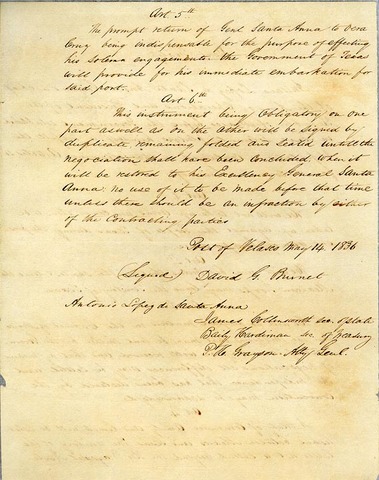 Art 5th
The prompt return of Genl Santa Anna to Vera
Cruz being indispensable for the purpose of effecting
his solemn engagements. the Government of Texas
will provide for his immediate embarkation for
said port.
Art 6th
This instrument being Obligatory on one
part as well as on the other will be signed by
duplicate remaining folded and Sealed untill the
negociation shall have been concluded when it
will be restored to his Excellency General Santa
Anna no use of it to be made before that time
unless there should be an infraction by either
of the Contracting parties
Port of Velasco May 14. 1836
(Signed) David G. Burnet
Antonio Lopez de Santa Anna
James Collinsworth Sec. of State
Baily Hardiman Sec of Treasury
P. W. Grayson. Atty Genl.